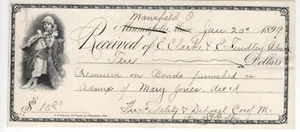 Mansfield O
Jan 20th 1899
Received of E. Claine & C. Findley
Ten Dollars
Premium on Bonds furnished as
of Mary Jones, dec'd
$ 10.00 The Fidelity & Deposit Co of M.